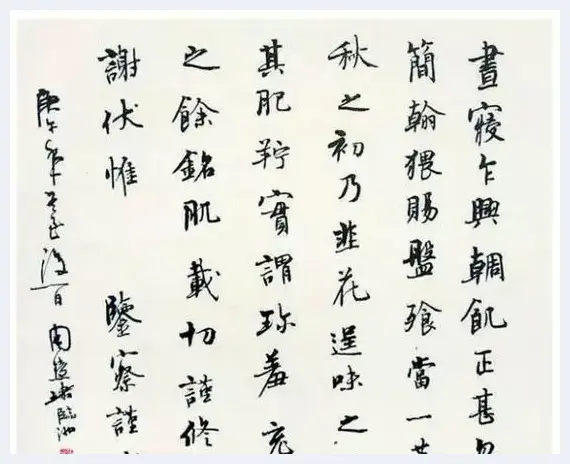 晝寢乍興輖飢正甚
簡翰猥賜盤飧當一
秋之初乃韭花逞味之
其肥羜實謂珎羞充
之餘銘肌載切謹修
謝伏惟 鑒察謹
庚午年 後一日 周 臨